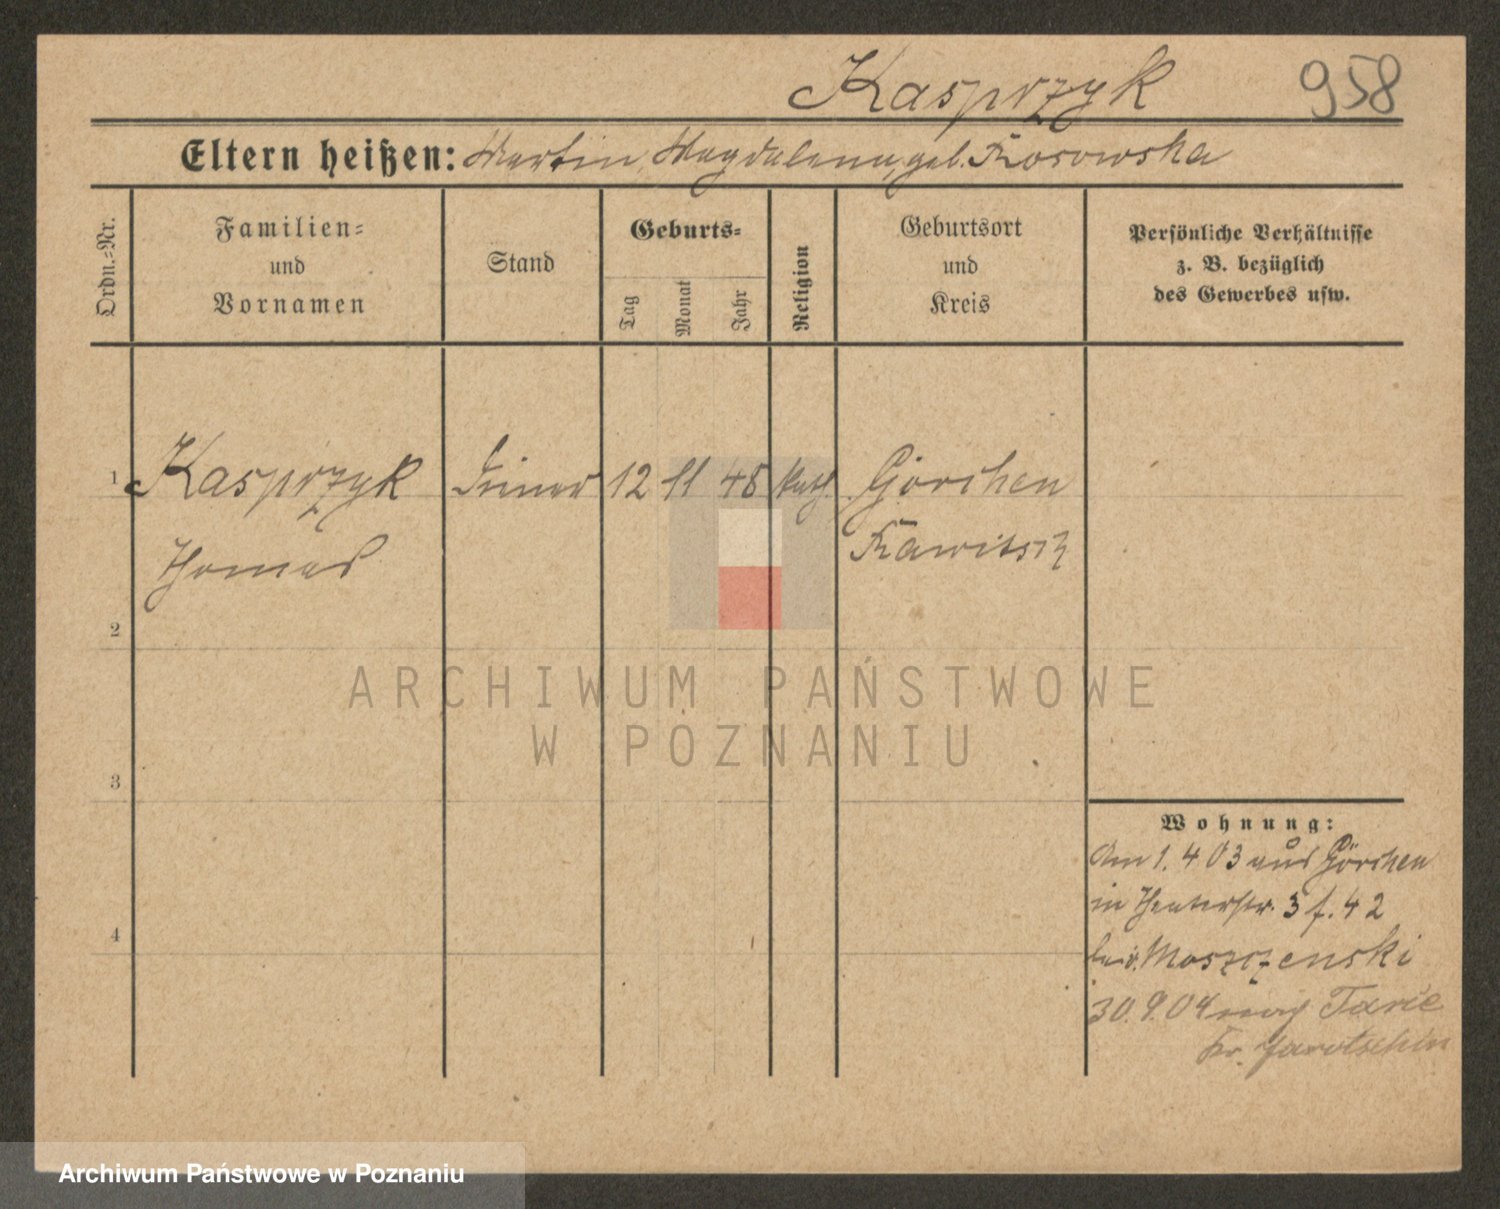 Kasprzyk 958
Eltern heißen: Martin, Magdalena, geb. Kosowska
Ordn.-Nr.
Familien=
und
Vornamen
Stand
Geburts=
Tag
Monat
Jahr
Religion
Geburtsort
und
Kreis
Persönliche Verhältnisse
z. B. bezüglich
des Gewerbes usw.
1 Kasprzyk 12 11 48 kath. Görchen
Thomas Rawitsch
2
ARCHIWUM PAŃSTWOWE
W POZNANIU
3
Wohnung:
Am 1. 4 03 aus Görchen
in Theaterstr. 3 f. 42
bei v. Moszczenski
30. 9. 04 nach Tarce
Kr. Jarotschin
4
Archiwum Państwowe w Poznaniu